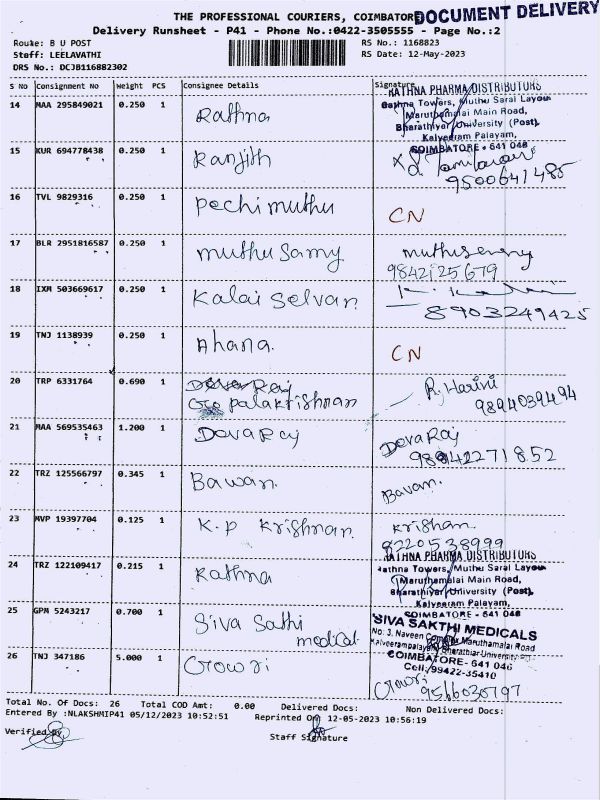 THE PROFESSIONAL COURIERS, COIMBATORE
DOCUMENT DELIVERY
Delivery Runsheet - P41 - Phone No.:0422-3505555 - Page No.:2
Route: B U POST RS No.: 1168823
Staff: LEELAVATHI RS Date: 12-May-2023
DRS No.: DCJB116882302
S No Consignment No Weight PCS Consignee Details Signature
RATHNA PHARMA DISTRIBUTORS
14 MAA 295849021 0.250 1 Rathna
Rathna Towers, Muthu Sarai Layout
Maruthamalai Main Road,
Bharathiyar University (Post),
Kalveeram Palayam,
COIMBATORE - 641 046
15 KUR 694778438 0.250 1 Ranjith
9500641485
16 TVL 9829316 0.250 1 Pechimuthu CN
17 BLR 2951816587 0.250 1 muthu Samy
9842125679
18 IXM 503669617 0.250 1 Kalai Selvan
8903249425
19 TNJ 1138939 0.250 1 Ahana. CN
20 TRP 6331764 0.690 1 Deva Raj R. Harini
Gopalakrishnan 9894039494
21 MAA 569535463 1.200 1 Deva Raj Deva Raj
42271852
22 TRZ 125566797 0.345 1 Bawan. Bavan.
23 MVP 19397704 0.125 1 K.P Krishnan. Krishan.
9220538999
RATHNA PHARMA DISTRIBUTORS
24 TRZ 122109417 0.215 1 Rathna
Rathna Towers, Muthu Sarai Layout
Maruthamalai Main Road,
Bharathiyar University (Post),
Kalveeram Palayam,
COIMBATORE - 641 046
25 GPM 5243217 0.700 1 Siva Sathi
medical
SIVA SAKTHI MEDICALS
No: 3, Naveen Complex Maruthamalai Road
Kalveerampalayam Bharathiar University
COIMBATORE - 641 046
Cell: 99422-35410
26 TNJ 347186 5.000 1 Gowri
Gowri
Total No. Of Docs: 26 Total COD Amt: 0.00 Delivered Docs: Non Delivered Docs:
Entered By :NLAKSHMIP41 05/12/2023 10:52:51 Reprinted On 12-05-2023 10:56:19
Verified By
Staff Signature